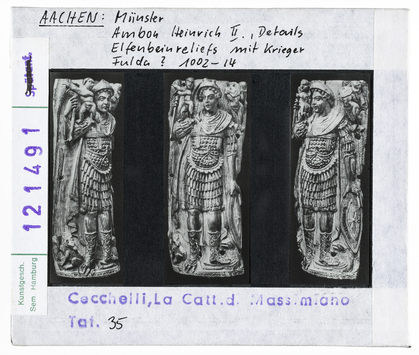 AACHEN: Münster
Ambon Heinrich II., Details
Elfenbeinreliefs mit Krieger
Fulda? 1002-14
121491
Kunstgesch.
Sem. Hamburg
Cecchelli, La Catt. d. Massimiano
Taf. 35